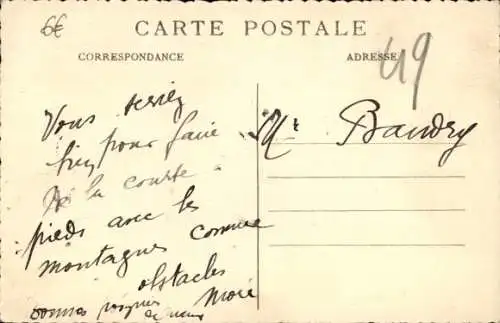 6€
CARTE POSTALE
CORRESPONDANCE
ADRESSE
49
Vous seriez
pour faire
de la course à
pieds avec les
montagnes comme
obstacles
Bonnes
Mr Baudry